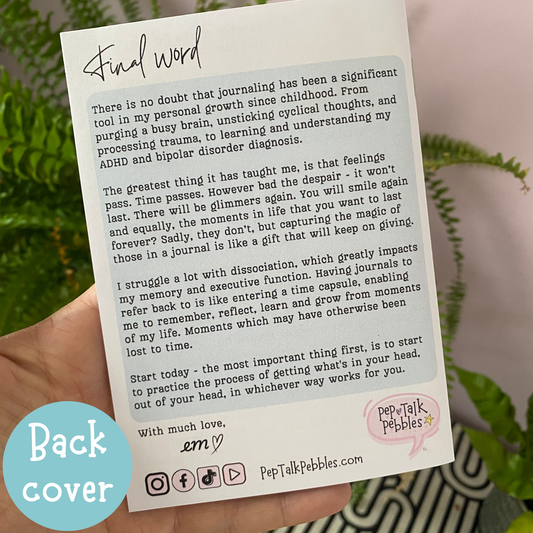 Final word
There is no doubt that journaling has been a significant
tool in my personal growth since childhood. From
purging a busy brain, unsticking cyclical thoughts, and
processing trauma, to learning and understanding my
ADHD and bipolar disorder diagnosis.
The greatest thing it has taught me, is that feelings
pass. Time passes. However bad the despair - it won't
last. There will be glimmers again. You will smile again
and equally, the moments in life that you want to last
forever? Sadly, they don't, but capturing the magic of
those in a journal is like a gift that will keep on giving.
I struggle a lot with dissociation, which greatly impacts
my memory and executive function. Having journals to
refer back to is like entering a time capsule, enabling
me to remember, reflect, learn and grow from moments
of my life. Moments which may have otherwise been
lost to time.
Start today - the most important thing first, is to start
to practice the process of getting what's in your head,
out of your head, in whichever way works for you.
With much love,
em
PepTalkPebbles.com
pep Talk
pebbles
Back
cover